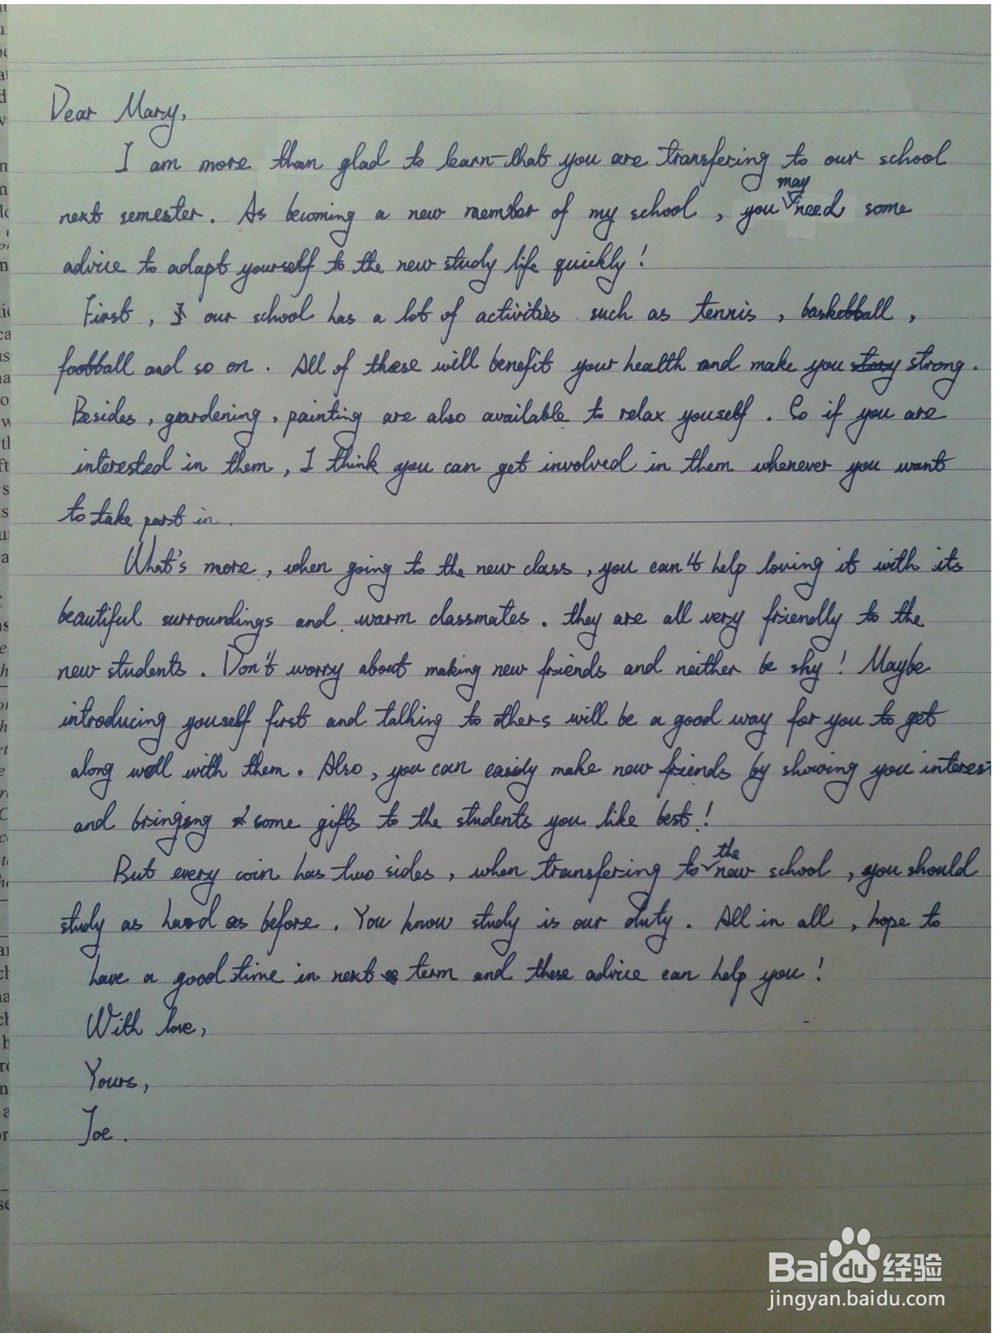 Dear Mary,
I am more than glad to learn that you are transfering to our school
next semester. As becoming a new member of my school, you may need some
advice to adapt yourself to the new study life quickly!
First, our school has a lot of activities such as tennis, basketball,
football and so on. All of these will benefit your health and make you strong.
Besides, gardening, painting are also available to relax youself. So if you are
interested in them, I think you can get involved in them whenever you want
to take part in.
What's more, when going to the new class, you can't help loving it with its
beautiful surroundings and warm classmates. they are all very friendly to the
new students. Don't worry about making new friends and neither be shy! Maybe
introducing youself first and talking to others will be a good way for you to get
along well with them. Also, you can easily make new friends by showing you interest
and bringing some gifts to the students you like best!
But every coin has two sides, when transfering to the new school, you should
study as hard as before. You know study is our duty. All in all, hope to
have a good time in next term and these advice can help you!
With love,
Yours,
Joe.
Baidu 经验
jingyan.baidu.com